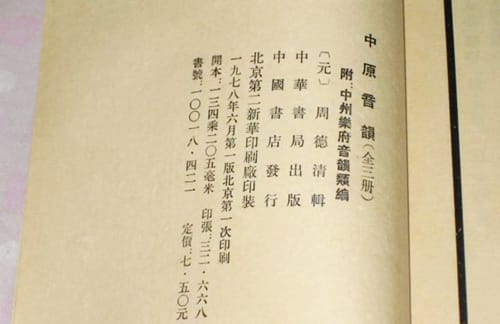 中原音韻（全三册）
附：中州樂府音韻類編
〔元〕周德清輯
中華書局出版
中國書店發行
北京第二新華印刷廠印裝
一九七八年六月第一版北京第一次印刷
開本：一三四乘二〇五毫米 印張：三二·六六八
書號：一〇〇一八·四二一 定價：七·五〇元